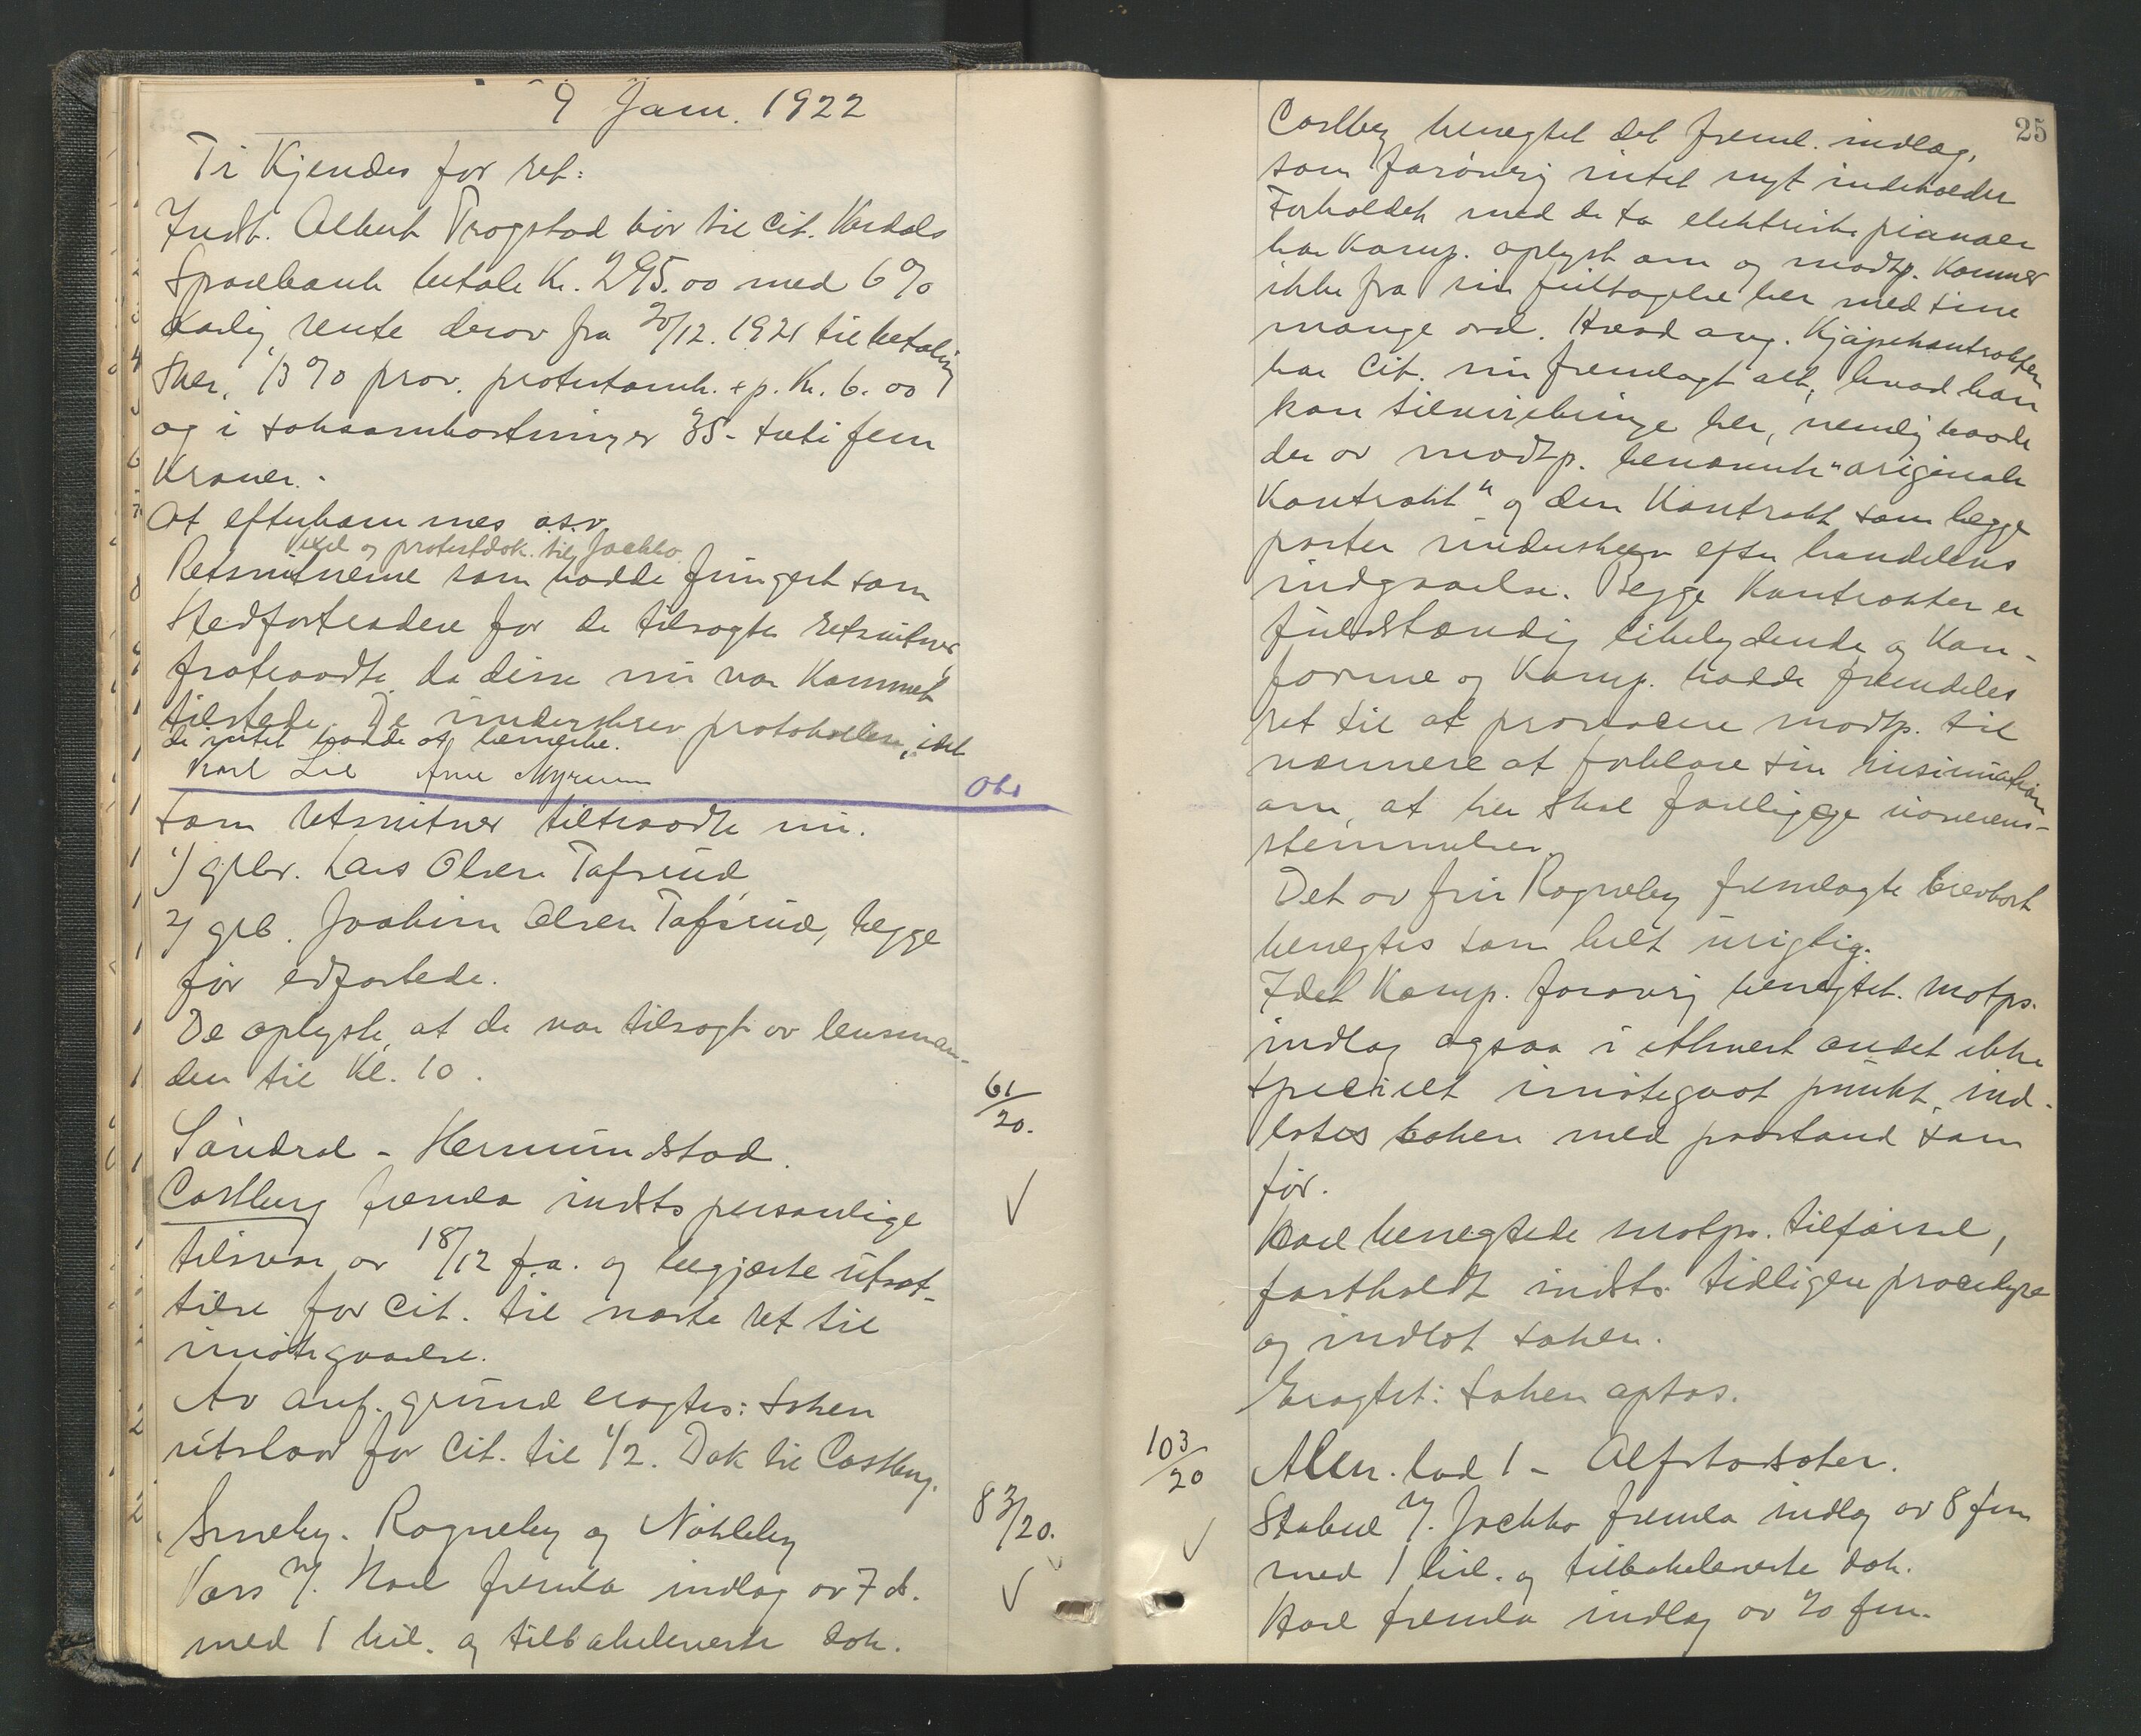 9 Janu. 1922
Ti Kjendes for ret:
Indt. Albert Trogstad bør til cit. Vardals
Sparebank betale Kr. 295.00 med 6%
aarlig rente derav fra 20/12. 1921 til betaling
sker, 1/3 % prov. protestomk. + p. Kr. 6.00
og i saksomkostninger 35 - treti fem
Kroner. -
At efterkommes osv.
Vexel og protestdok. til Jackbo
Retsvitnerne som hadde fungert som
Stedfortrædere for de tilsagte retsvitner,
fratraadte da disse nu var kommet
tilstede. De underskrev protokollen, idet
de intet hadde at bemerke.
Karl Lie Arne Myrum
Som retsvitner tiltraadte nu.
1) gbr. Lars Olsen Tafsrud
2) grb. Joakim Olsen Tafsrud, begge
før edfæstede.
De oplyste, at de var tilsagt av lensman-
den til Kl. 10.
61/20.
Sandral - Hermundstad.
Castberg fremla indts personlige
tilsvar av 18/12 f.a. og begjærte utsæt-
telse for cit. til næste ret til
imøtegaaelse.
Av anf. grund eragtes: saken
utstaar for cit. til 1/2. Dok til Castberg.
83/20.
Smeby - Ragneby og Nøkleby
Vars v/. Hoel fremla indlæg av 7 ds.
med 1 bil. og tilbakeleverte dok.
25
Castberg benegtet det freml. indlæg,
som forøvrig intet nyt indeholder
Forholdet med de to elektriske pianoer
har Komp. oplyst om og modtp. kommer
ikke fra sin feiltagelse her med sine
mange ord. Hvad ang. Kjøpekontrakten
har cit. nu fremlagt alt, hvad han
kan tilveiebringe her, nemlig baade
den av modtp. benævnte "originale
Kontrakt" og den Kontrakt som begge
parter underskrev efter handelens
indgaaelse. Begge Kontrakter er
fuldstændig likelydende og kon-
forme og Komp. hadde fremdeles
ret til at provocere modtp. til
nærmere at forklare sin insinuation
om, at her skal foreligge uoverens-
stemmelser.
Det av fru Ragneby fremlagte brevkort
benegtes som helt urigtig.
Idet Komp. forøvrig benegtet motps.
indlæg ogsaa i ethvert andet ikke
specielt imøtegaat punkt, ind-
lates saken med paastand som
før.
Hoel benegtede motps. tilførsel,
fastholdt indts. tidligere procedyre
og indlot saken.
Eragtet: saken optas.
103/20
Alm. lod 1 - Alfstadsæter.
Stabel v/. Jackbo fremla indlæg av 8 jan
med 1 bil. og tilbakeleverte dok.
Hoel fremla indlæg av 20 jan.